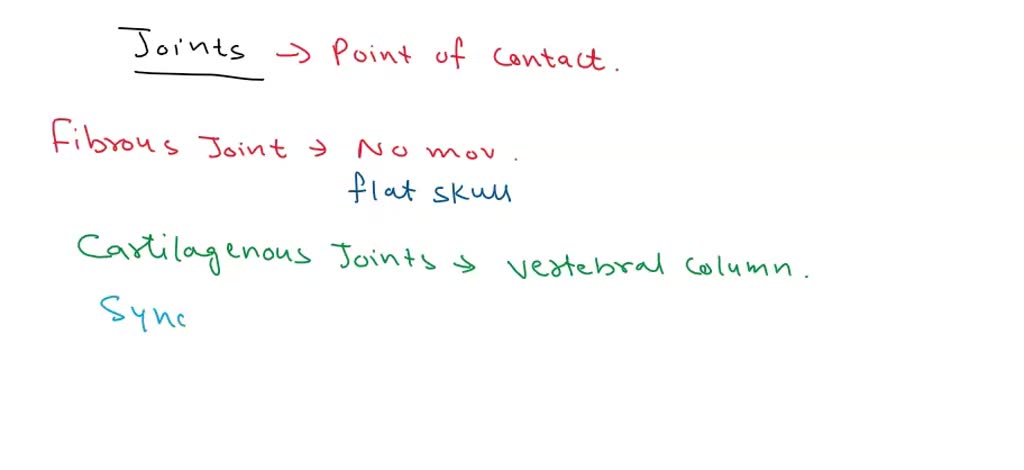 Joints → Point of contact.
Fibrous Joint → No mov.
flat skull
Cartilagenous Joints → vertebral column.
Sync